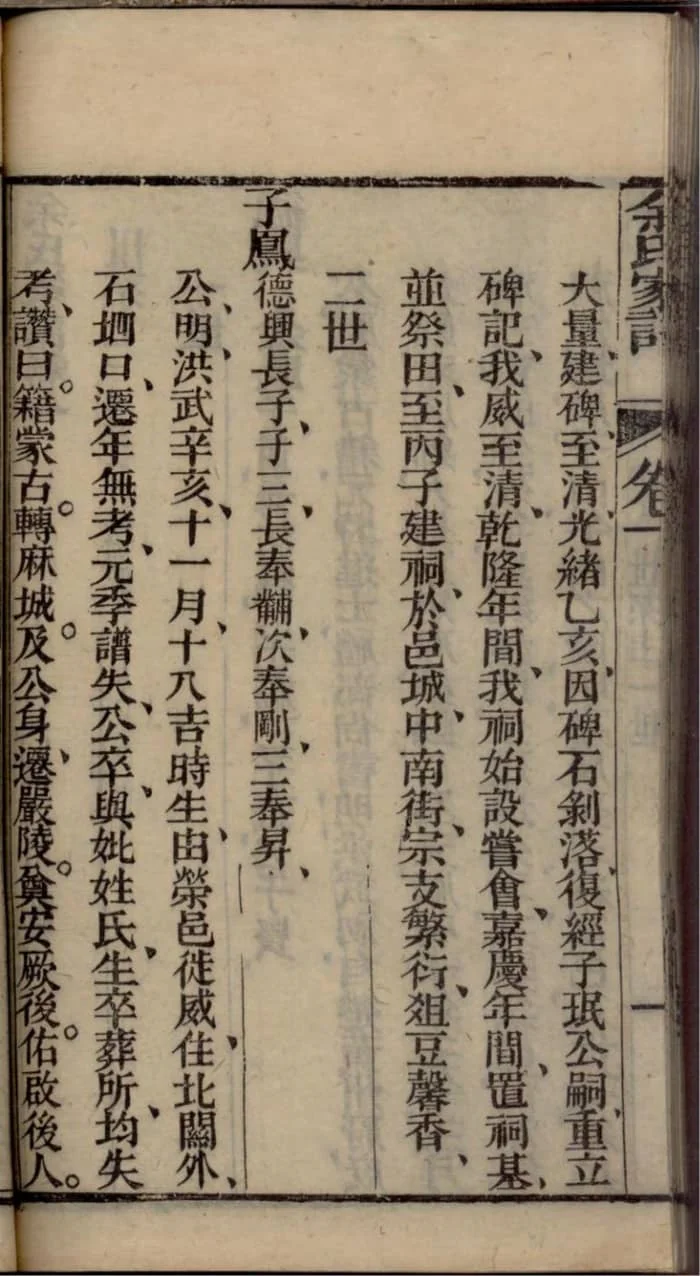 余氏家譜
卷一
一
大量、建碑、至清光緒乙亥、因碑石剝落、復經子珉公嗣、重立
碑記、我威至清、乾隆年間、我祠始設嘗會、嘉慶年間、置祠基、
並祭田、至丙子建祠、於邑城中、南街、宗支繁衍、俎豆馨香、
二世
子鳳德興長子、子三、長奉黼、次奉剛、三奉昇、
公、明、洪武辛亥、十一月、十八吉時生、由榮邑徙威、住北關外、
石堌口、遷年無考、元季譜失、公卒、與妣姓氏、生卒葬所、均失
考、讚曰。籍蒙古。轉麻城。及公身、遷嚴陵。奠安厥後。佑啟後人。